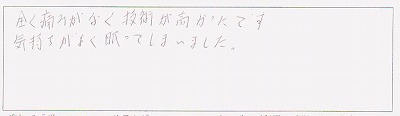 全く痛みがなく技術が高かったです
気持ちがよく眠ってしまいました。